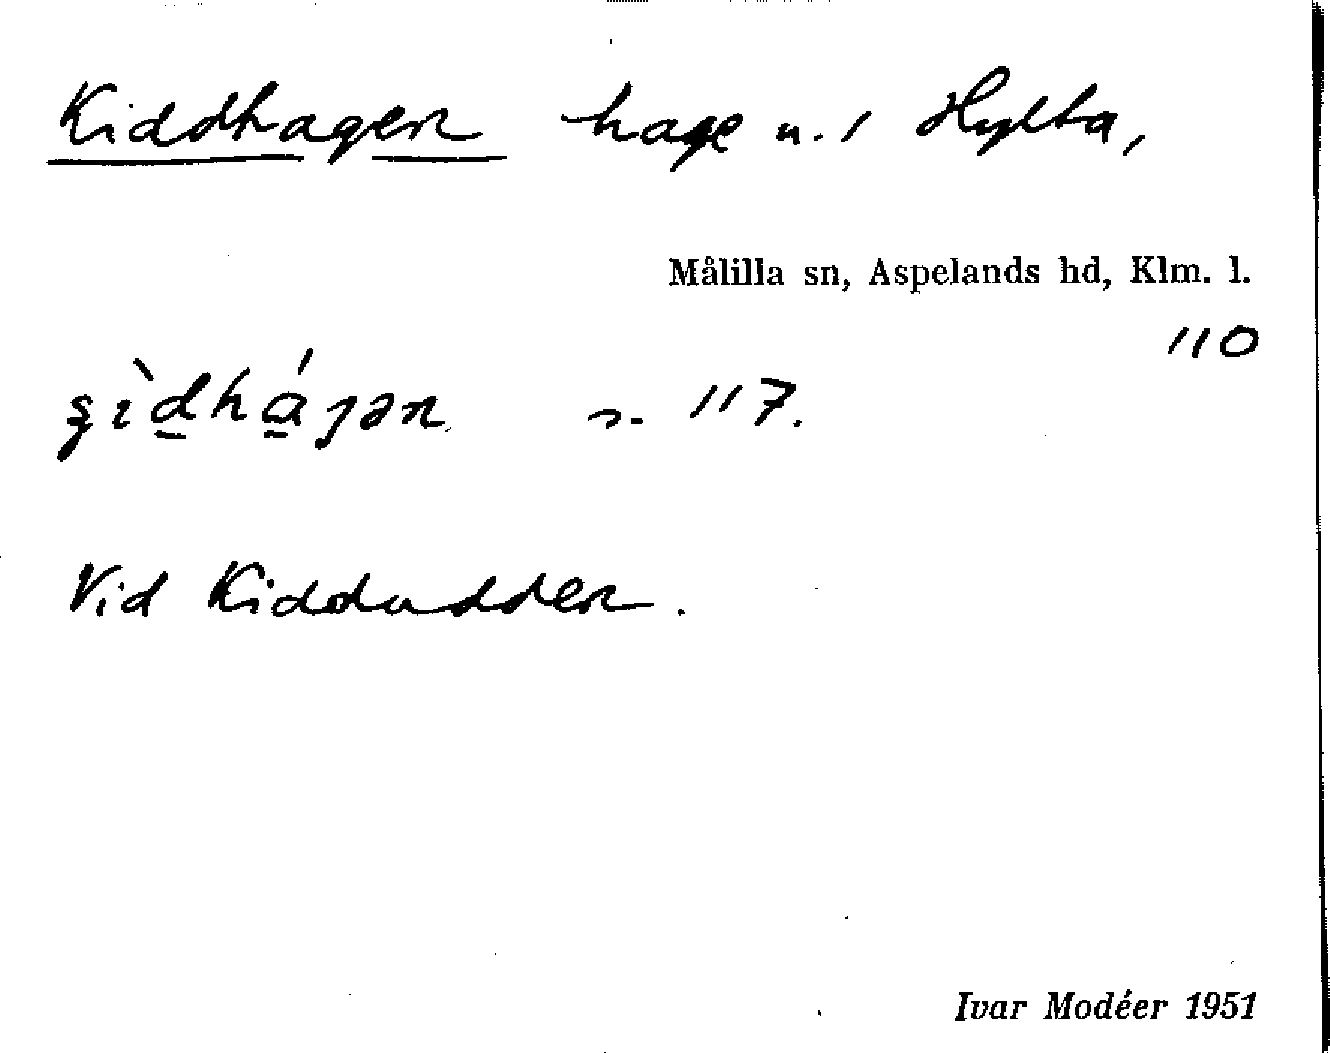 Kiddhagen hage u. 1 Hylta,
Målilla sn, Aspelands hd, Klm. l.
110
117.
Vid Kiddudden.
Ivar Modéer 1951